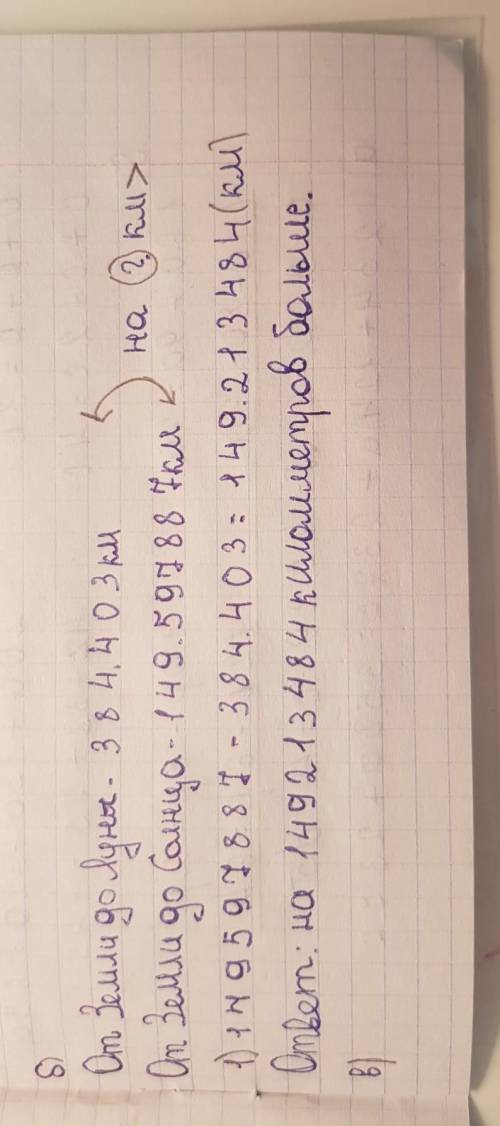 б)
От Земли до Луны - 384.403 км
на ? км >
От Земли до Солнца - 149.597887 км
1) 149597887 - 384.403 = 149.213484 (км)
Ответ: на 149213484 километров больше.
в)